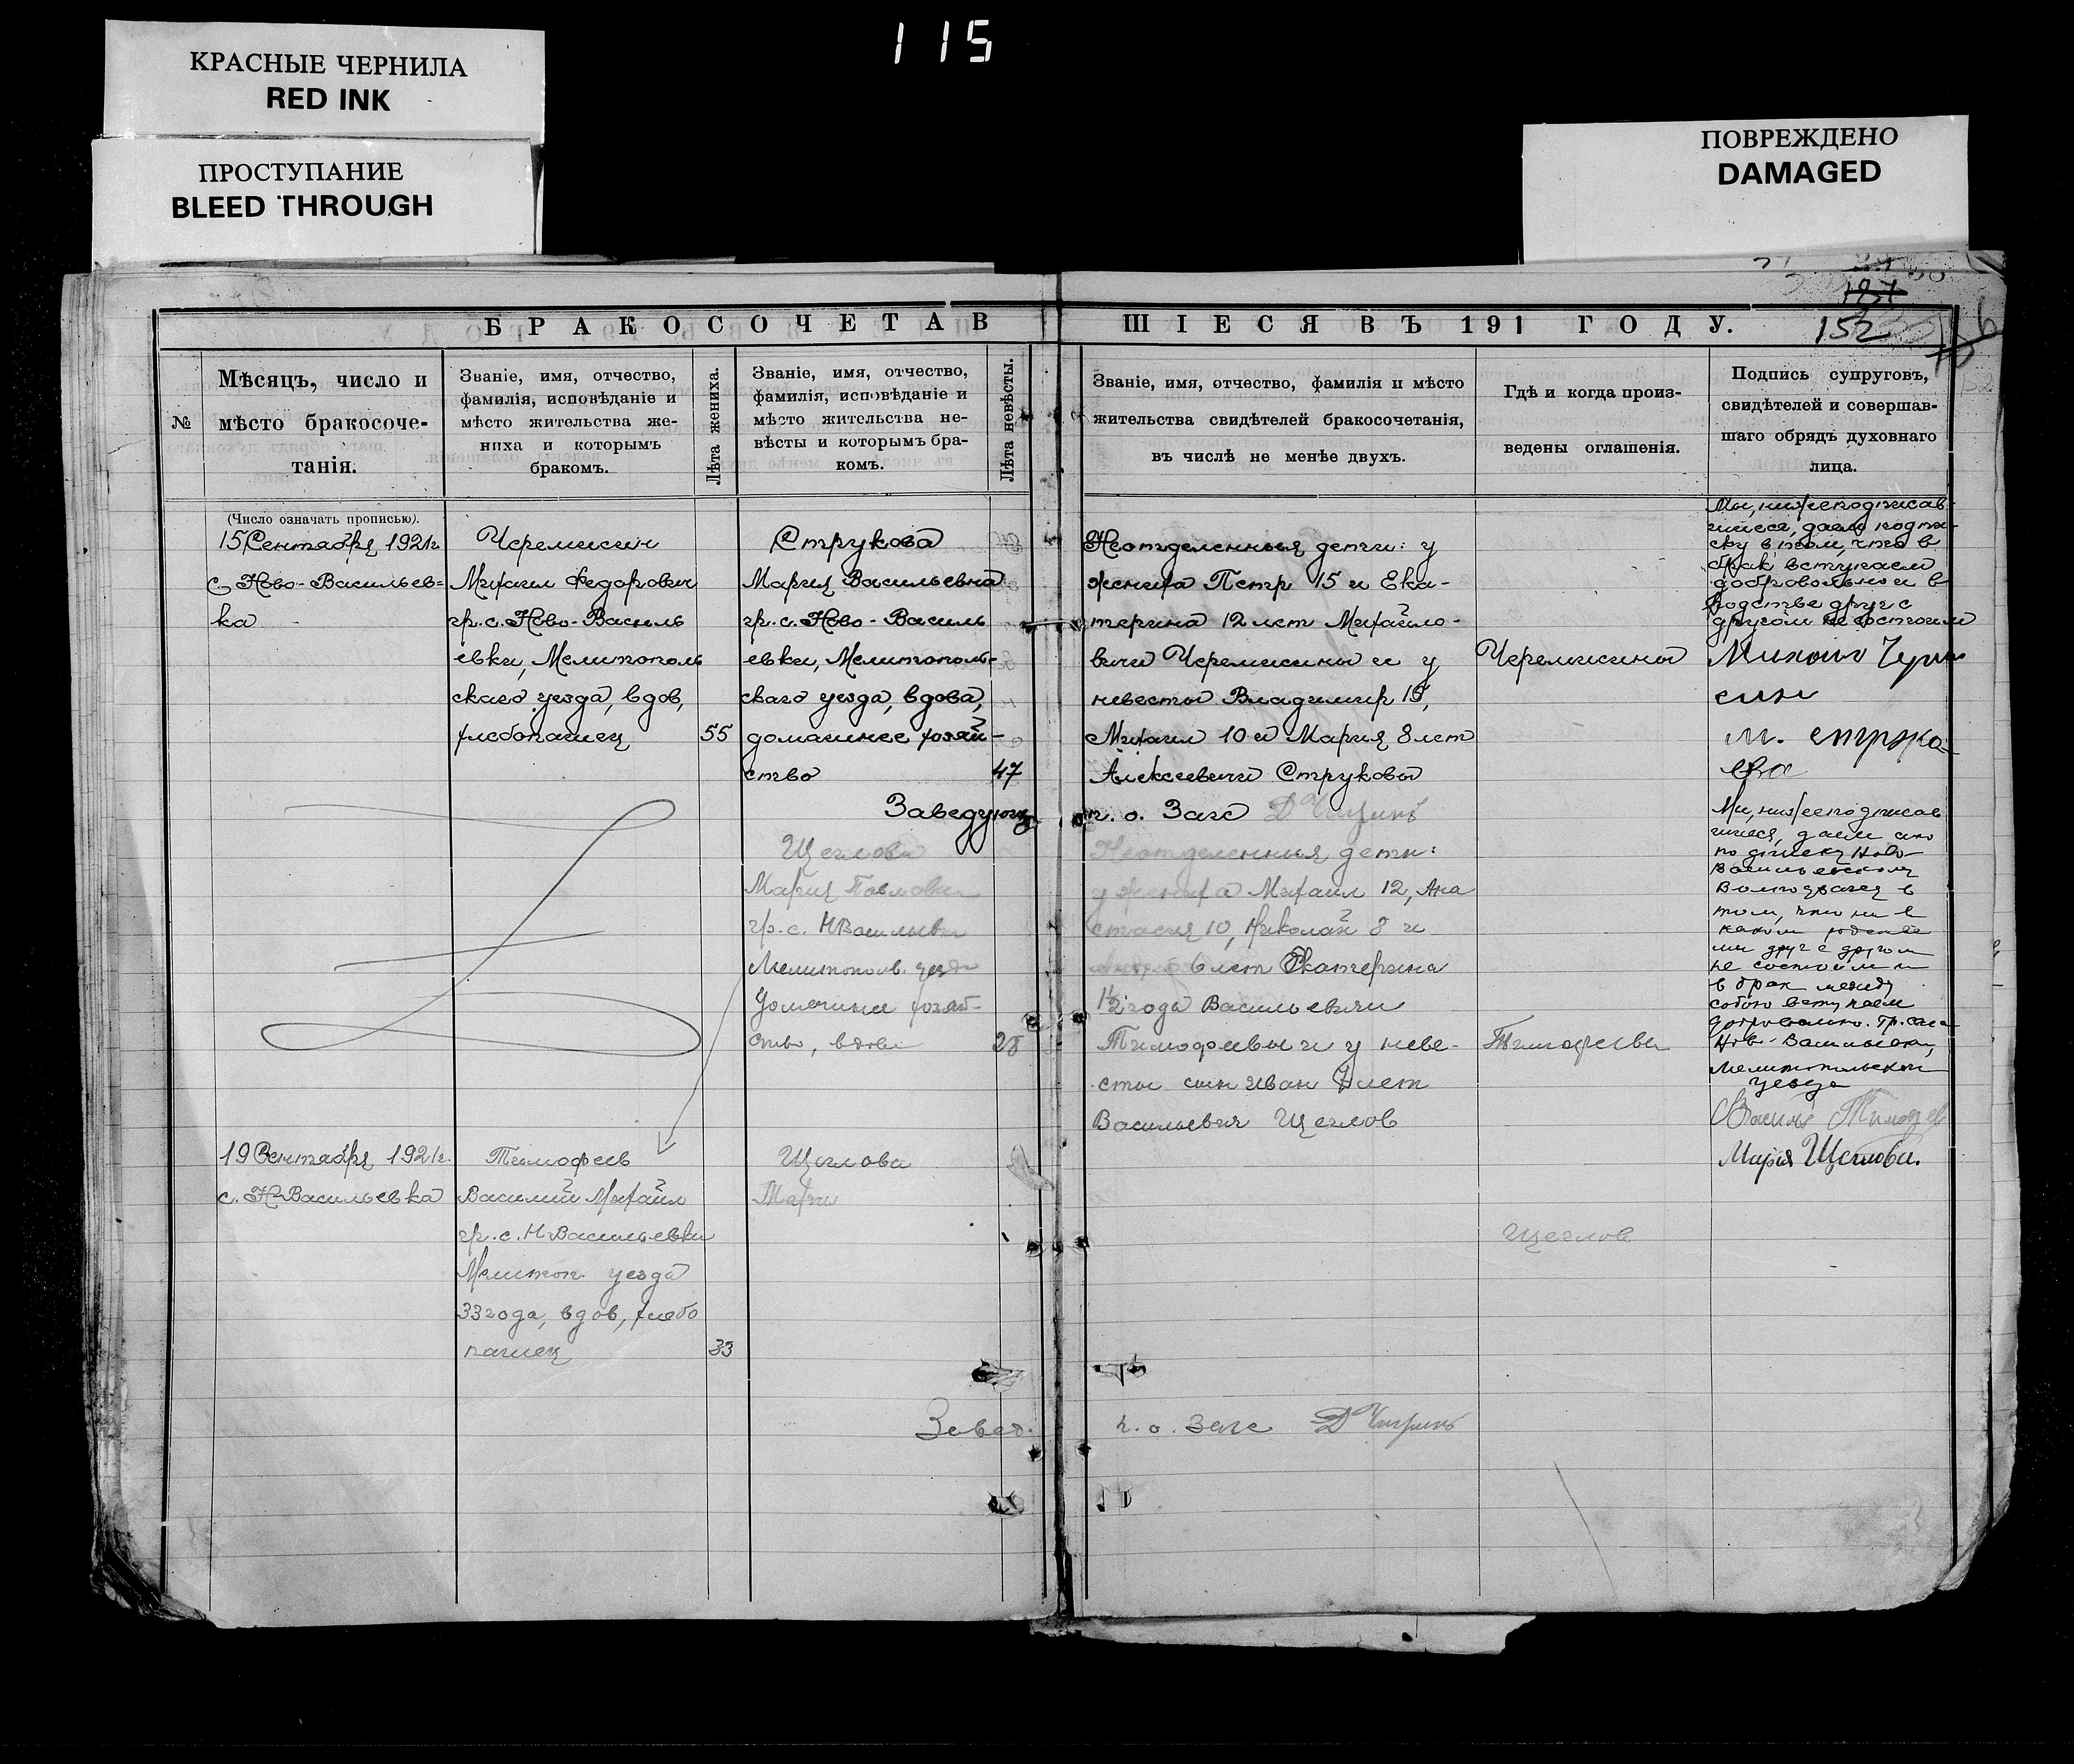 115
КРАСНЫЕ ЧЕРНИЛА
RED INK
ПРОСТУПАНИЕ
BLEED THROUGH
ПОВРЕЖДЕНО
DAMAGED
152
БРАКОСОЧЕТАВ
ШІЕСЯ ВЪ 191 ГОДУ.
№
Мѣсяцъ, число и
мѣсто бракосоче-
танія.
Званіе, имя, отчество,
фамилія, исповѣданіе и
мѣсто жительства же-
ниха и которымъ
бракомъ.
Лѣта жениха.
Званіе, имя, отчество,
фамилія, исповѣданіе и
мѣсто жительства не-
вѣсты и которымъ бра-
комъ.
Лѣта невѣсты.
Званіе, имя, отчество, фамилія и мѣсто
жительства свидѣтелей бракосочетанія,
въ числѣ не менѣе двухъ.
Гдѣ и когда произ-
ведены оглашенія.
Подпись супруговъ,
свидѣтелей и совершав-
шаго обрядъ духовнаго
лица.
(Число означать прописью).
15 Сентября 1921г.
с Ново-Васильев=
ка
Черемисин
Михаил Федорович
гр. с. Ново-Василь
евки, Мелитополь
скаго уезда, вдов,
хлебопашец
55
Струкова
Мария Васильевна
гр. с. Ново-Василь
евки, Мелитополь-
скаго уезда, вдова,
домашнее хозяй-
ство
47
Неотделенныя дети: у
жениха Петр 15 и Ека-
терина 12 лет Михайло-
вичи Черемисины и у
невесты Владимир 15,
Михаил 10 и Мария 8 лет
Алексеевичи Струковы
Черемисины
Мы, нижеподписав-
шиеся, даем подпи-
ску в том, что в
брак вступаем
добровольно и в
родстве друг с
другом не состоим
Михаил
м. струко-
ва
Заведующ
п. о. Загс
Щеглова
Мария Павловна
гр. с. Н Васильевки
Мелитопол. уезда
Домашнее хозяй-
ство, вдова
28
Неотделенныя дети:
у жениха Михаил 12, Ана
стасия 10, Николай 8 и
6 лет Екатерина
1½ года Васильевичи
Тимофеевы и у неве-
сты сын Иван 7 лет
Васильевич Щеглов
Тимофеевы
Мы, нижеподписав
шиеся, даем сию
подписку Ново-
Васильевскому
в
том, что ни в
каком родстве
мы друг с другом
не состоим и
в брак между
собою вступаем
добровольно. Гр. села
Нов-Васильевки,
Мелитопольского
уезда
Василий Тимофеев
Мария Щеглова.
19 Сентября 1921г.
с. Н Васильевка
Тимофеев
Василий Михайл
гр. с. Н Васильевки
Мелитоп. уезда
33 года, вдов, хлебо
пашец
33
Щеглова
Мария
Щеглов
Завед.
п. о. Загс